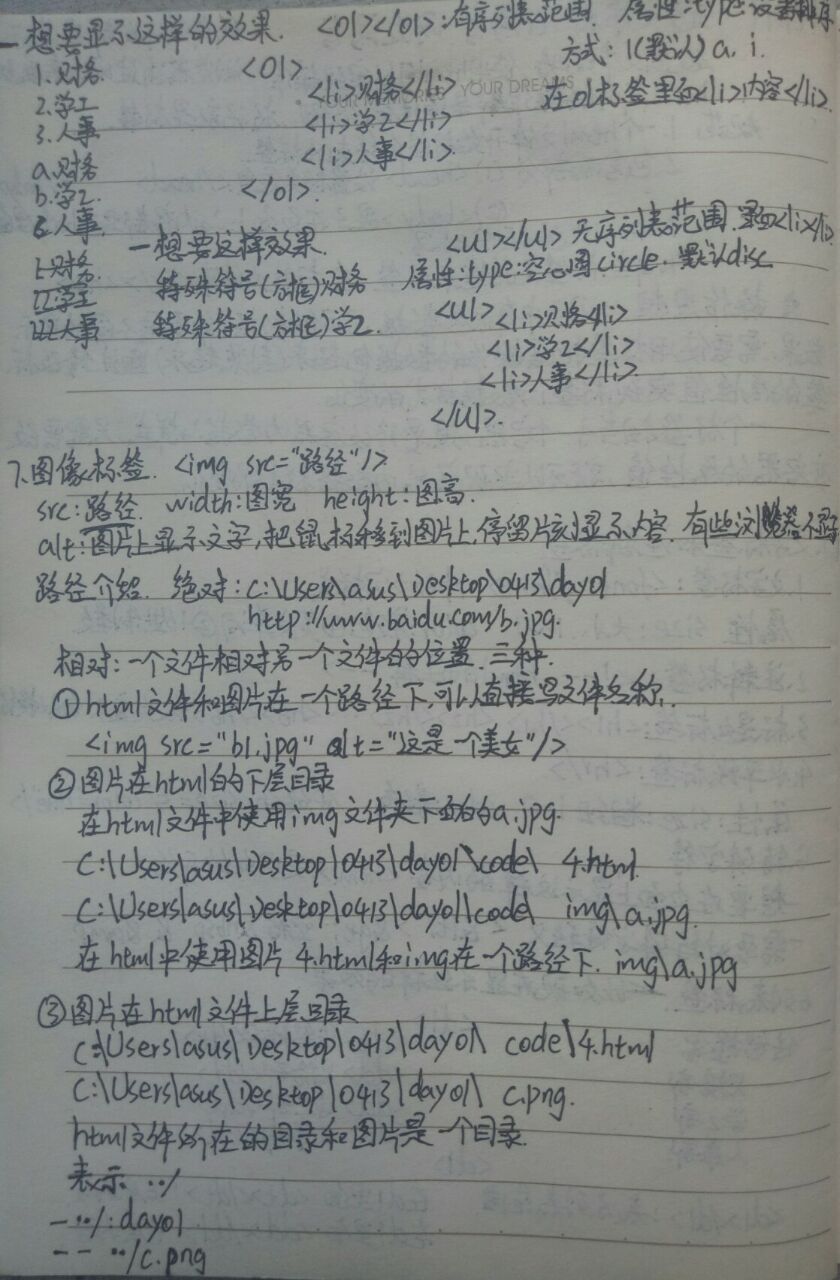 一想要显示这样的效果. <ol></ol>:有序列表范围. 属性:type:设置排序
方式: 1(默认) a. i.
1.财务 <ol>
<li>财务</li> 在ol标签里面<li>内容</li>
YOUR DREAMS
2.学工 <li>学工</li>
3.人事 <li>人事</li>
a.财务
b.学工 </ol>
c.人事
一想要这样效果. <ul></ul> 无序列表范围.里面<li></li>
i.财务 特殊符号(方框)财务 属性:type:空心圆circle.默认disc
ii.学工 特殊符号(方框)学工. <ul> <li>财务</li>
iii.人事 <li>学工</li>
<li>人事</li>
</ul>.
7.图像标签. <img src="路径"/>
src:路径. width:图宽 height:图高.
alt:图片上显示文字,把鼠标移到图片上,停留片刻显示内容. 有些浏览器不
路径介绍. 绝对: C:\Users\asus\Desktop\0413\day01
http://www.baidu.com/b.jpg.
相对:一个文件相对另一个文件的位置.三种.
①html文件和图片在一个路径下,可以直接写文件名称.
<img src="b1.jpg" alt="这是一个美女"/>
②图片在html的下层目录
在html文件中使用img文件夹下面的a.jpg.
C:\Users\asus\Desktop\0413\day01\code\ 4.html.
C:\Users\asus\Desktop\0413\day01\code\ img\a.jpg.
在html中使用图片 4.html和img在一个路径下. img\a.jpg
③图片在html文件上层目录
C:\Users\asus\Desktop\0413\day01\ code\4.html
C:\Users\asus\Desktop\0413\day01\ c.png.
html文件所在的目录和图片是一个目录.
表示 ../
-../:day01
-- ../c.png